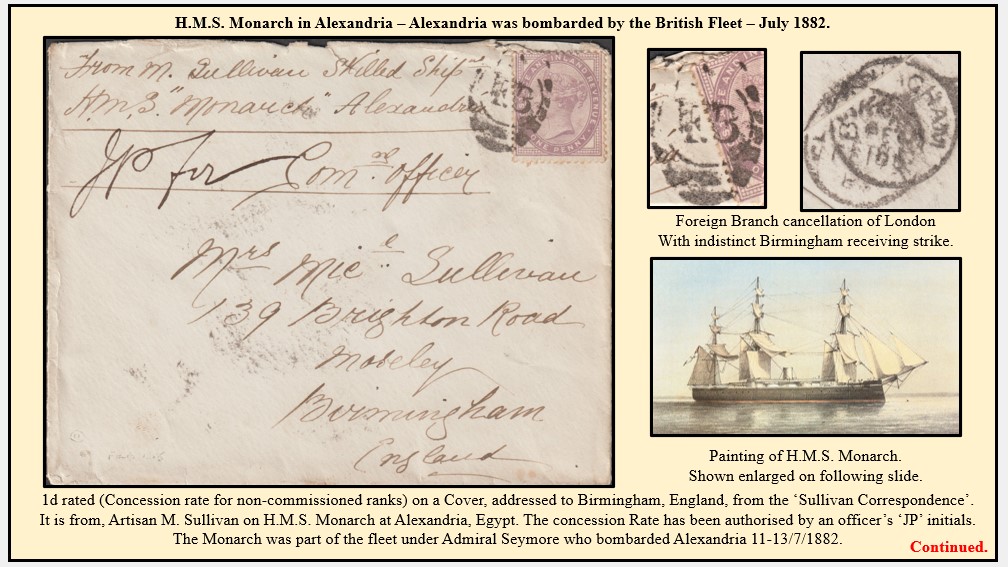 H.M.S. Monarch in Alexandria – Alexandria was bombarded by the British Fleet – July 1882.
From M. Sullivan Skilled Shipᵗ
H.M.S. "Monarch" Alexandra
JP for Comᵈ officer
Mrs Micˡ Sullivan
139 Brighton Road
Moseley
Birmingham
England
INLAND REVENUE
ONE PENNY
Foreign Branch cancellation of London
With indistinct Birmingham receiving strike.
Painting of H.M.S. Monarch.
Shown enlarged on following slide.
1d rated (Concession rate for non-commissioned ranks) on a Cover, addressed to Birmingham, England, from the ‘Sullivan Correspondence’.
It is from, Artisan M. Sullivan on H.M.S. Monarch at Alexandria, Egypt. The concession Rate has been authorised by an officer’s ‘JP’ initials.
The Monarch was part of the fleet under Admiral Seymore who bombarded Alexandria 11-13/7/1882.
Continued.